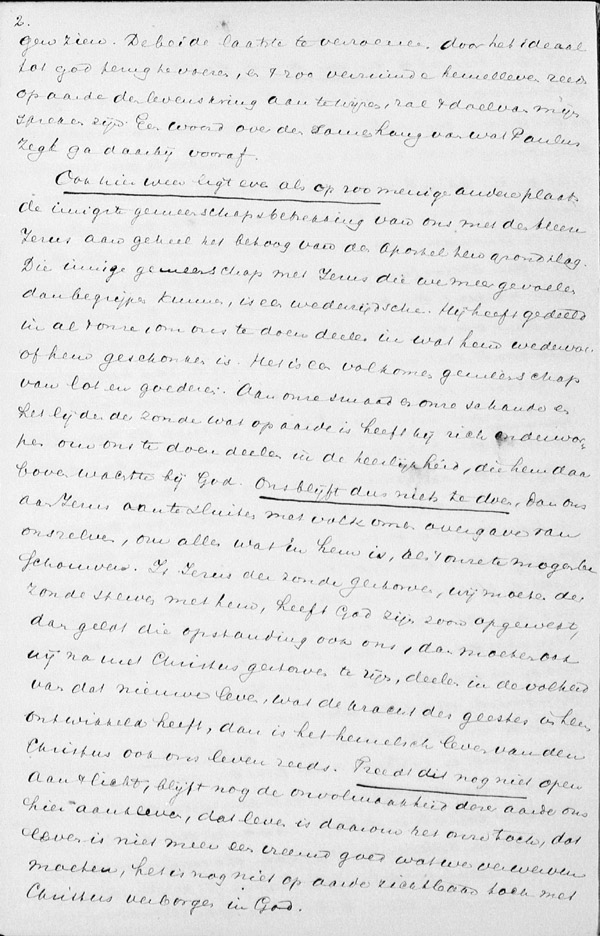 2.
gen zien. De beide laatste te verzoenen door het ideaal
tot god terug te voeren, en 't zoo verziende hemelleven reeds
op aarde der levenskring aan te wijzen, zal 't doel van mijn
spreken zijn. Een woord over den samenhang van wat Paulus
zegt ga daarbij vooraf.
Ook hier weer ligt even als op zoo menige andere plaats
de innigste gemeenschapsbetrekking van ons met den Heer
Jezus aan geheel het betoog van den Apostel ten grondslag.
Die innige gemeenschap met Jezus die we meer gevoelen
dan begrijpen kunnen, is een wederzijdsche. Hij heeft gedeeld
in al 't onze, om ons te doen deelen in wat hem wedervaren
of hem geschonken is. Het is een volkomen gemeenschap
van lot en goederen. Aan onze smaad en onze schande en
het lijden der zonde wat op aarde is heeft hij zich onderwor-
pen om ons te doen deelen in de heerlijkheid, die hem daar
boven wachtte bij God. Ons blijft dus niets te doen, dan ons
aan Jezus aan te sluiten met volkomen overgave van
onszelven, om alles wat in hem is, als 't onze te mogen be
schouwen. Is Jezus der zonde gestorven, wij moeten der
zonde sterven met hem, heeft God zijn zoon opgewekt,
dan geldt die opstanding ook ons, dan moeten ook
wij na met Christus gestorven te zijn, deelen in de volheid
van dat nieuwe leven, wat de kracht des geestes in hem
ontwikkeld heeft, dan is het hemelsch leven van den
Christus ook ons leven reeds. Treedt dit nog niet open
aan 't licht, blijft nog de onvolmaaktheid dezer aarde ons
hier aankleven, dat leven is daarom het onze toch, dat
leven is niet meer een vreemd goed wat we verwerven
moeten, het is nog niet op aarde zichtbaar toch met
Christus verborgen in God.